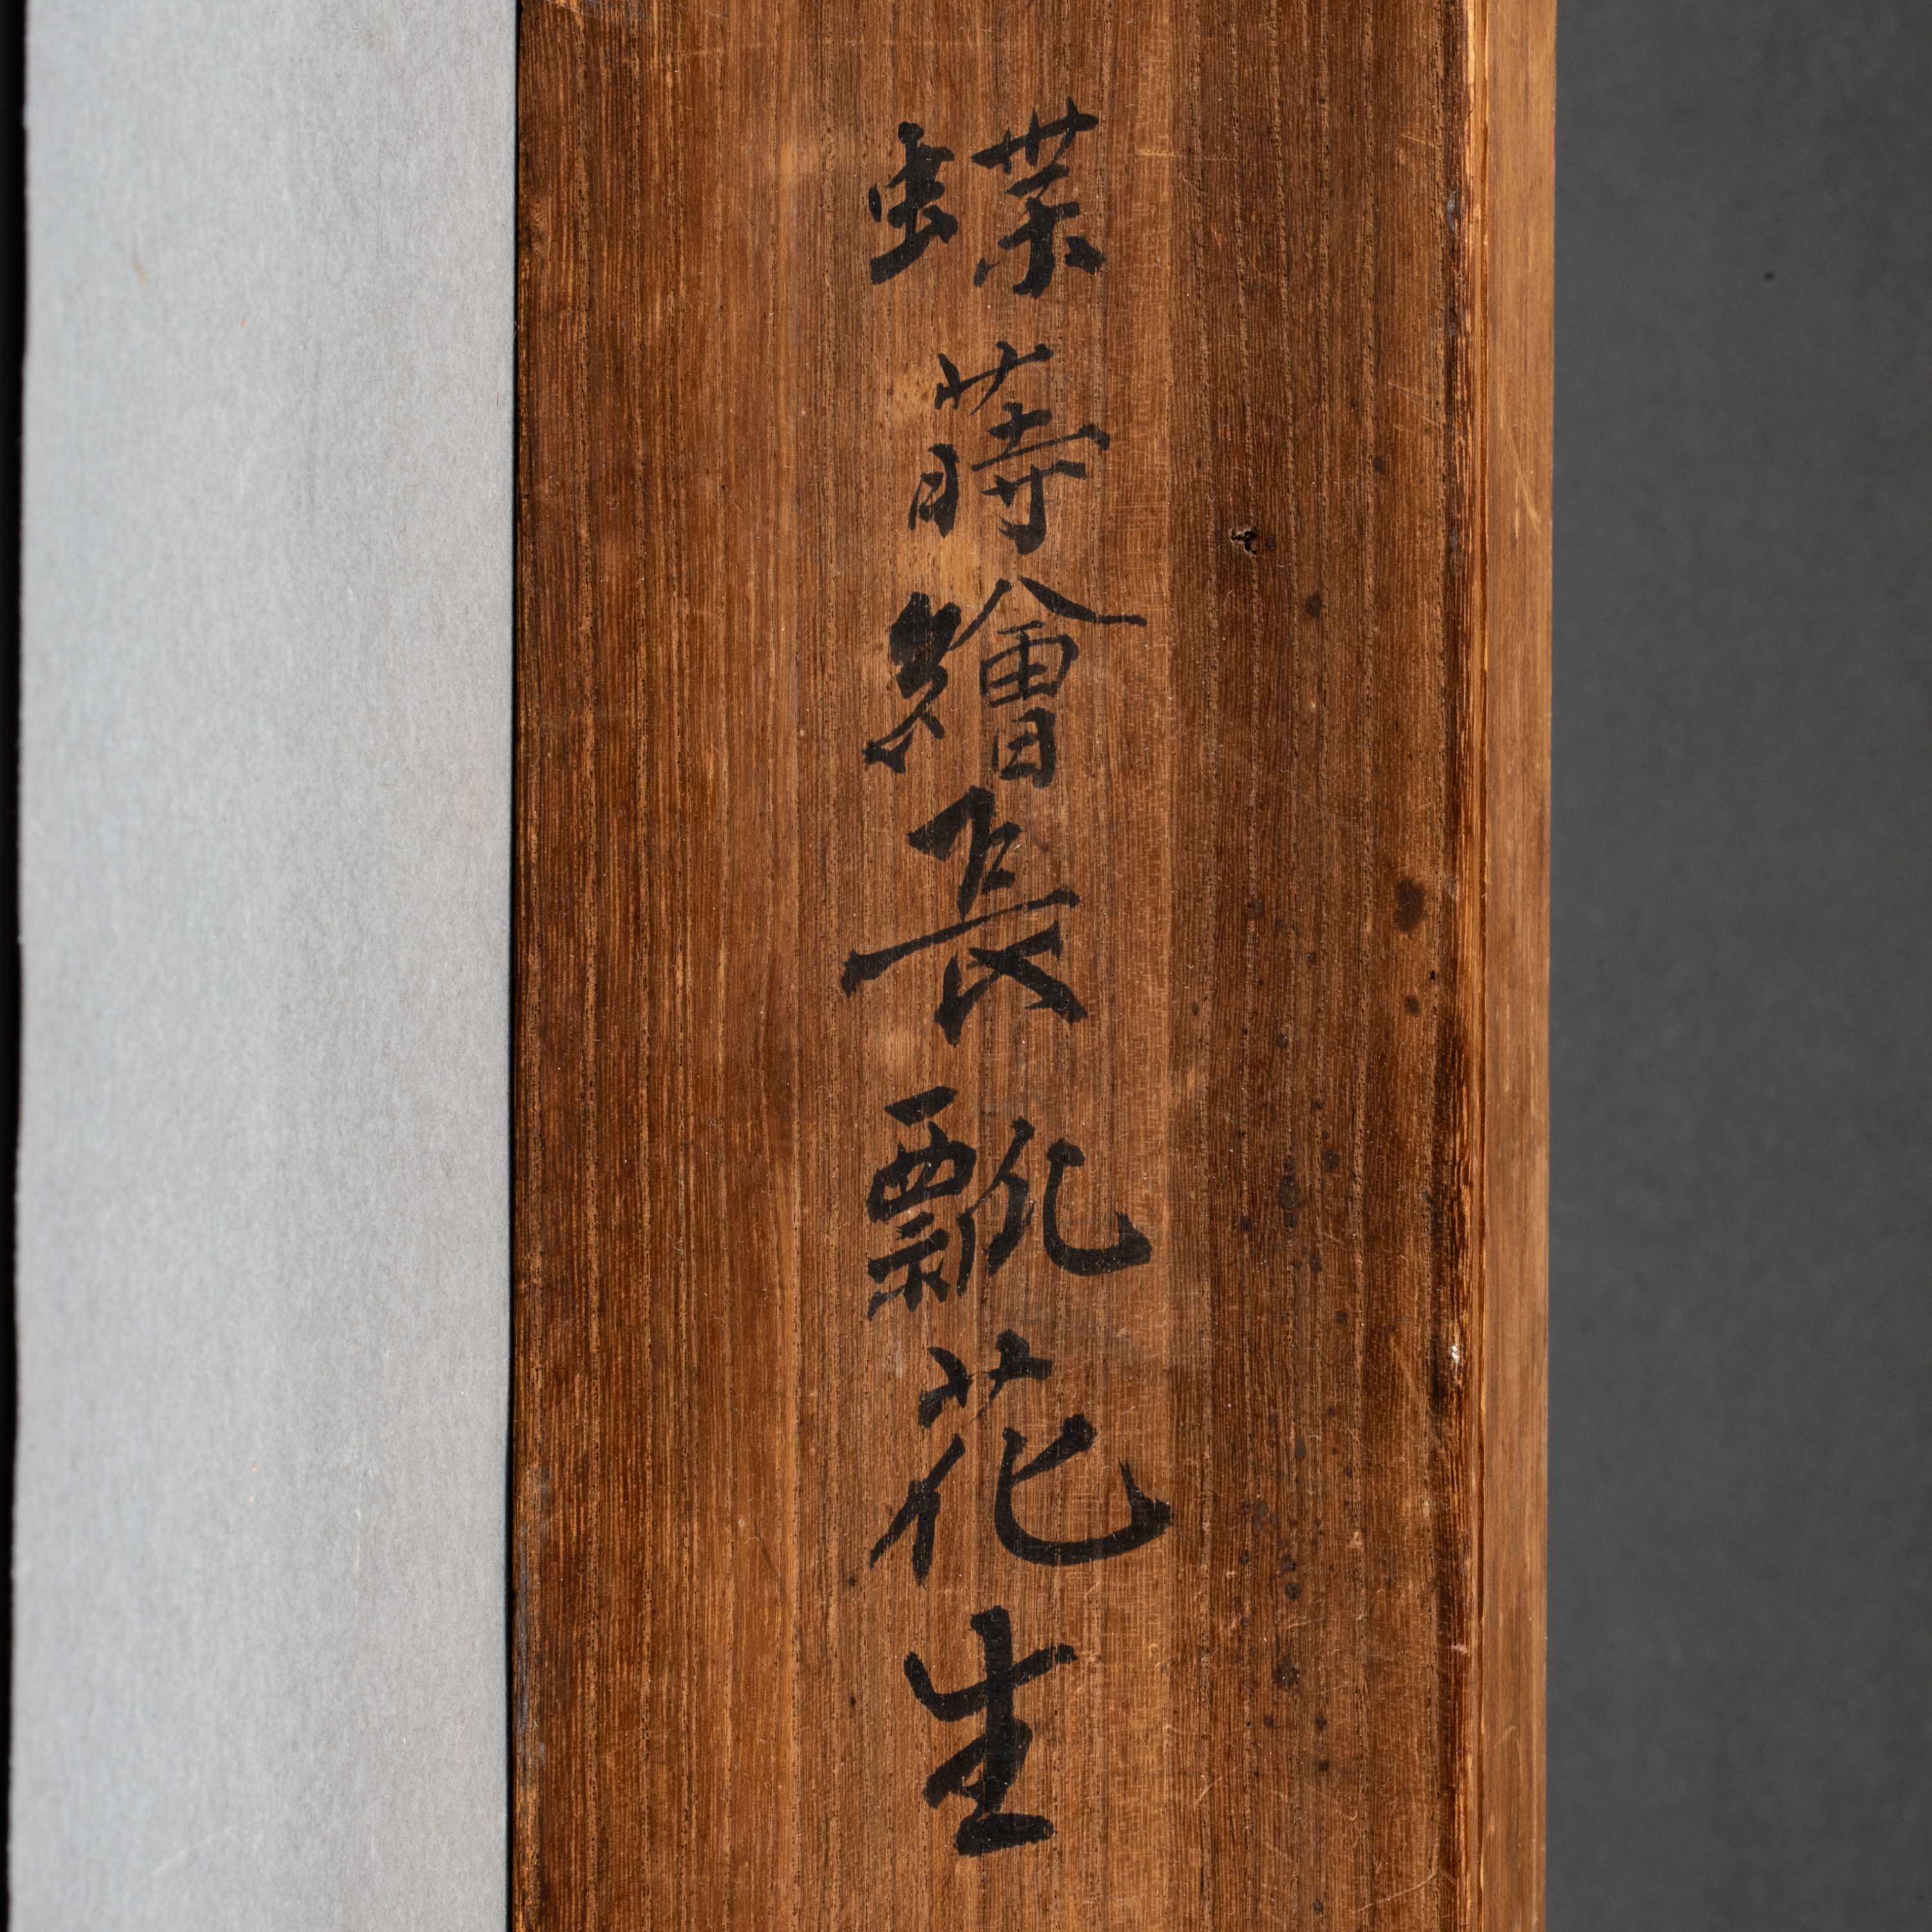 蝶蒔繪長瓢花生